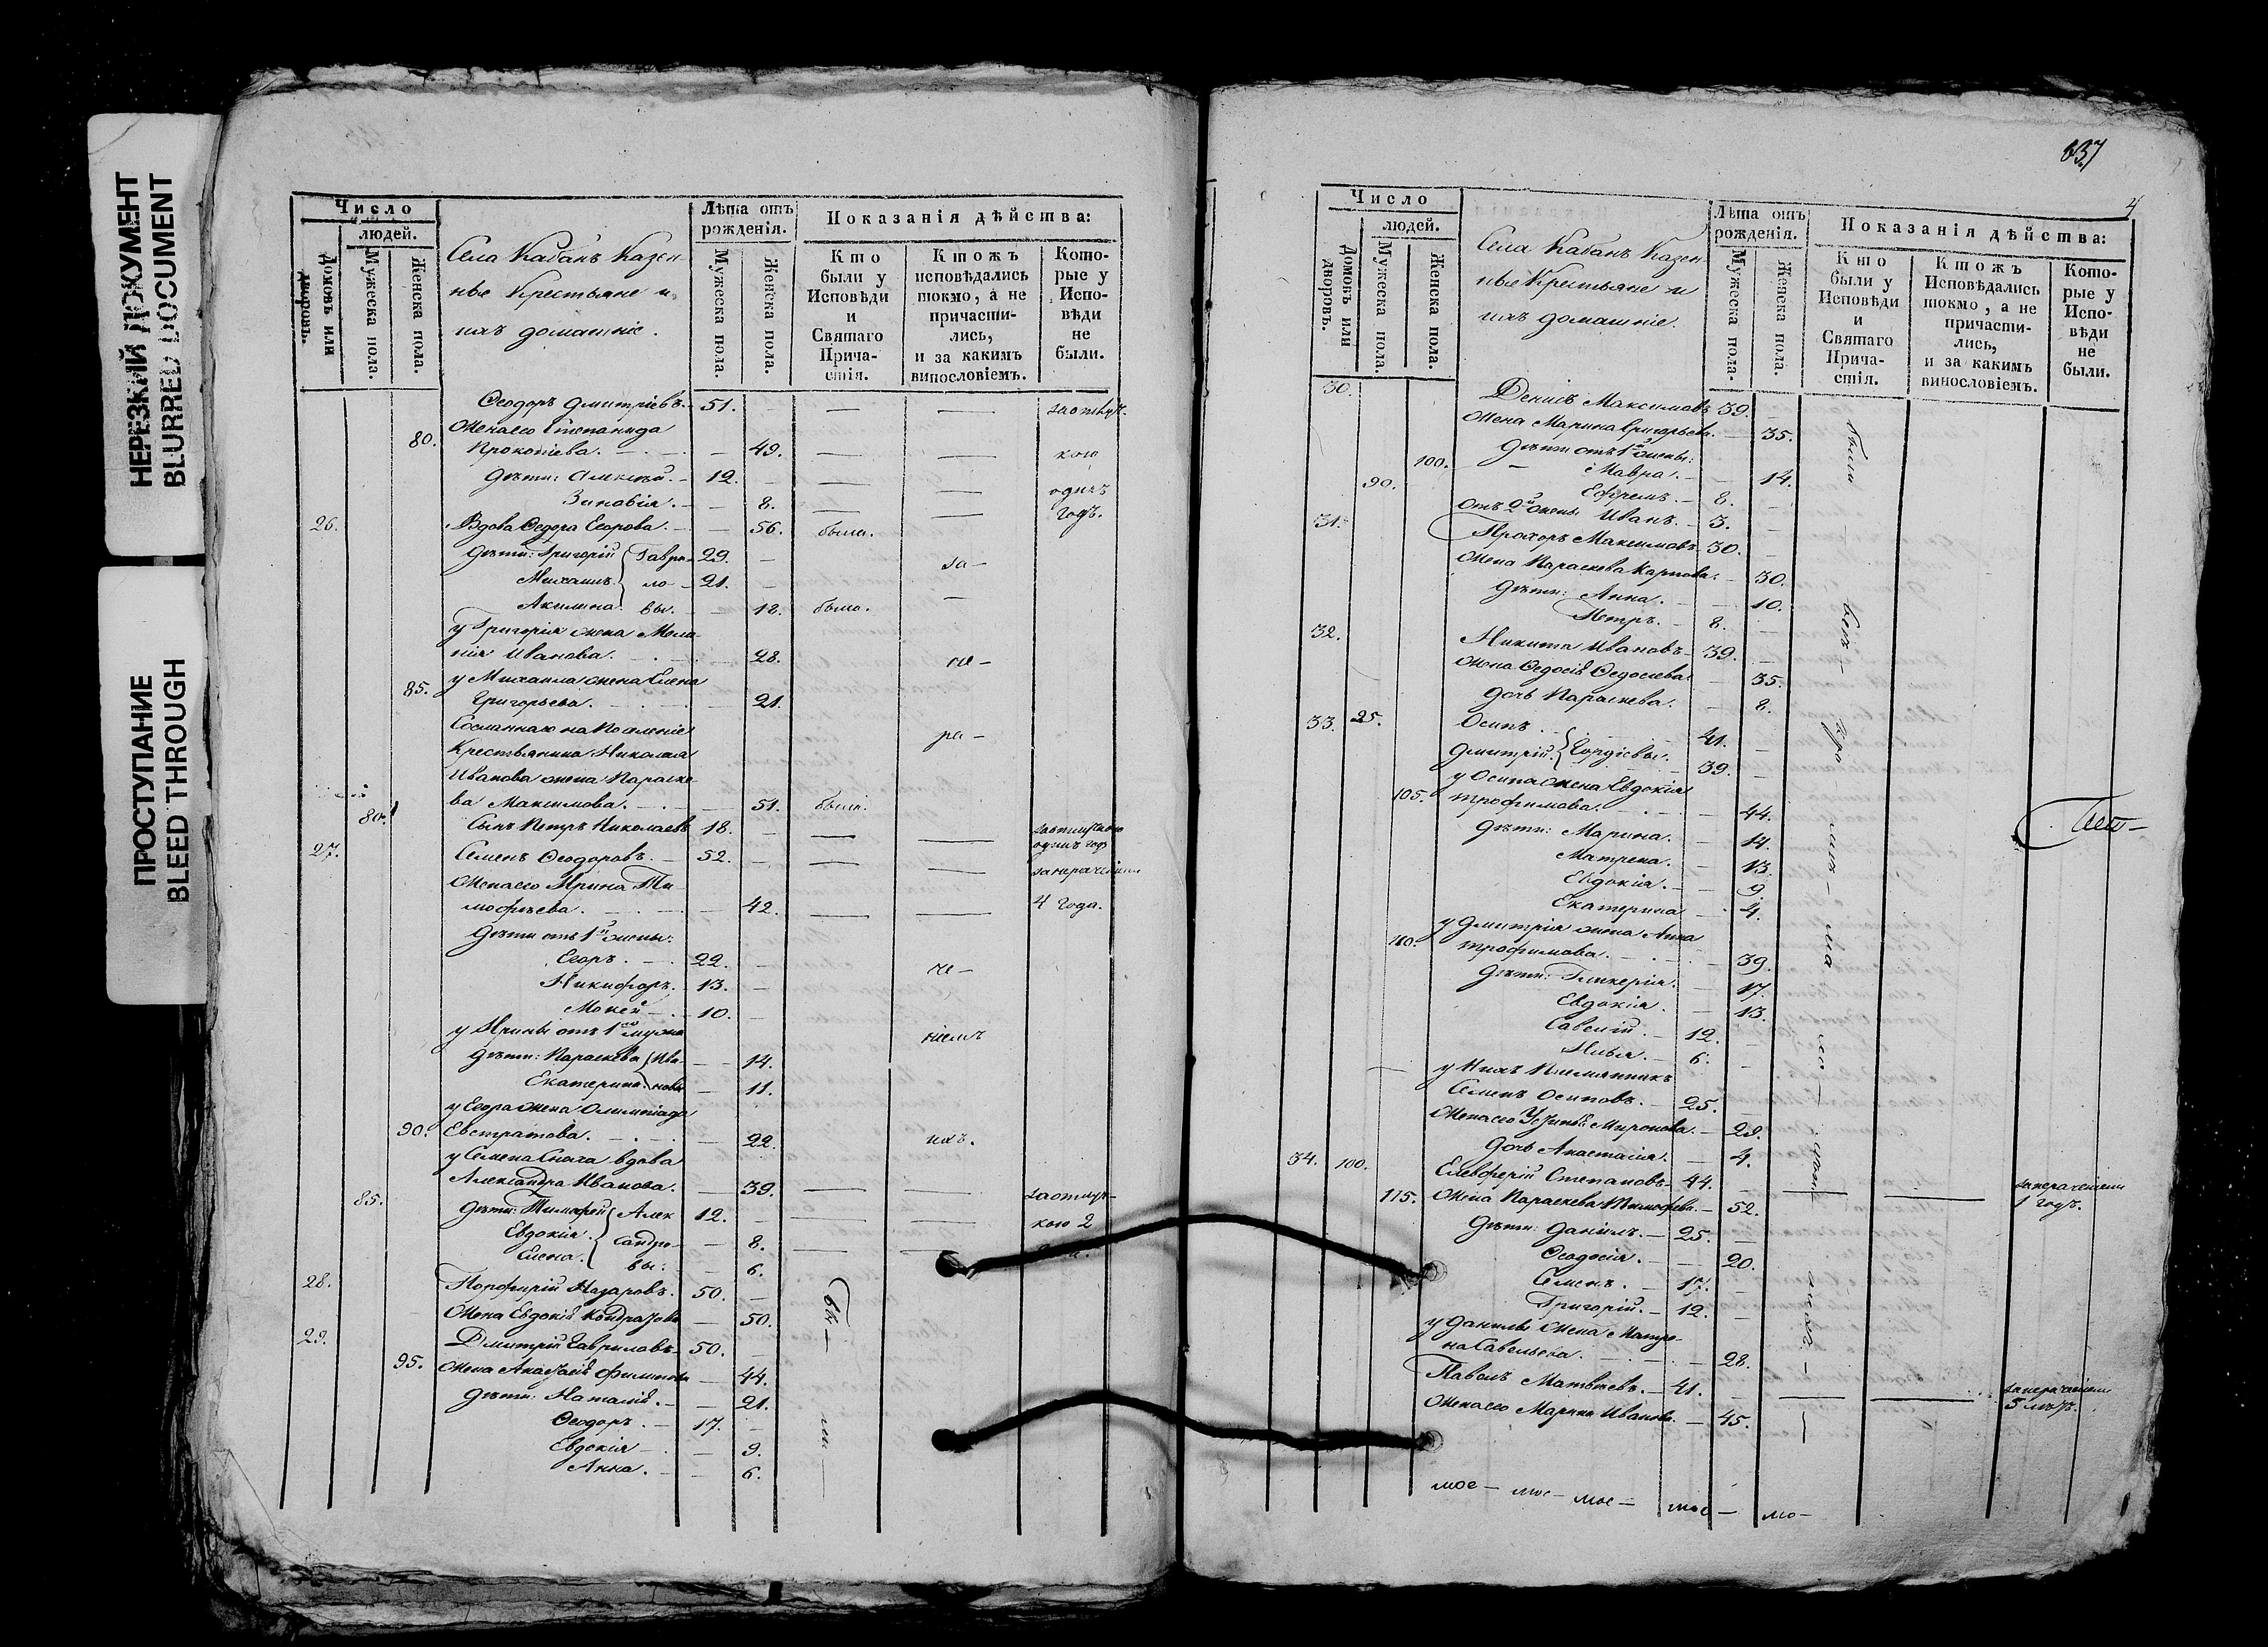 НЕРЕЗКИЙ ДОКУМЕНТ
BLURRED DOCUMENT
ПРОСТУПАНИЕ
BLEED THROUGH
Число
людей.
Домовъ или дворовъ.
Мужеска пола.
Женска пола.
Села Кабанъ Казен-
ные Крестьяне и
ихъ домашніе.
Лѣта отъ рожденія.
Мужеска пола.
Женска пола.
Показанія дѣйства:
Кто были у Исповѣди и Святаго Прича-стія.
Ктожъ исповѣдались токмо, а не причасти-лись, и за какимъ винословіемъ.
Кото-рые у Испо-вѣди не были.
Ѳеодоръ Дмитріевъ. 51. — — за отлуч.
Жена его Степанида
80. Прокопіева. — 49. — — кою
Дѣти: Алексѣй. 12. — — — одинъ
Зиновія. — 8. — — годъ.
26. Вдова Ѳедора Егорова. — 56. была.
Дѣти: Григорій Гаври- 29. — за —
Михаилъ ло- 21. —
Акилина вы. — 18. была. —
у Григорія жена Мела-
нія Иванова. — 28. не —
у Михаила жена Елена
85. Григорьева. — 21.
Сосланнаго на Поселеніе
Крестьянина Николая ра —
Иванова жена Параске-
ва Максимова. — 51. была.
80. Сынъ Петръ Николаевъ 18. — — — одинъ годъ
27. Семенъ Ѳеодоровъ. 52. — — — за нерачені
Жена его Ирина Ти-
мофѣева. — 42. — — 4 года.
Дѣти отъ 1й жены:
Егоръ. 22. — че —
Никифоръ. 13. —
Мокей 10. —
у Ирины отъ 1го мужа ніемъ
дѣти: Параскева Ива- — 14.
Екатерина новы — 11.
у Егора жена Олимпіада
90. Евстратова. — 22. ихъ.
у Семена Сноха вдова
Александра Иванова. — 39. — — за отлуч-
85. Дѣти: Тимофей Алек 12. — — — кою 2
Евдокія сандро- — 8. — —
Елена вы. — 6.
28. Порфирій Назаровъ. 50. — бы —
Жена Евдокія — 50.
29. Дмитрій Гавриловъ 50. —
95. Жена — 44.
Дѣти: Наталія. — 21.
Ѳеодоръ. 17. — ли —
Евдокія — 9.
Анна. — 6.
4
Число
людей.
Домовъ или дворовъ.
Мужеска пола.
Женска пола.
Села Кабанъ Казен-
ные Крестьяне и
ихъ домашніе.
Лѣта отъ рожденія.
Мужеска пола.
Женска пола.
Показанія дѣйства:
Кто были у Исповѣди и Святаго Прича-стія.
Ктожъ Исповѣдались токмо, а не причасти-лись, и за какимъ винословіемъ.
Кото-рые у Испо-вѣди не были.
30. Денисъ Максимовъ 39. —
Жена Марина Григорьева. — 35. были
Дѣти отъ 1й жены:
100. Мавра. — 14.
90. Ефремъ. 8. —
отъ 2й жены Иванъ. 3. —
31. Прохоръ Максимовъ 30. —
Жена Параскева Карпова. — 30.
Дѣти: Анна. — 10.
Петръ. 8. —
32. Никита Ивановъ 39. —
Жена Ѳедосія Ѳедосѣева — 35.
дочь Параскева. — 8.
33. 95. Осипъ 41. —
Дмитрій Гордіевы. 39. —
у Осипа жена Евдокія
105. Трофимова. — 44.
Дѣти: Марина. — 14.
Матрена. — 13.
Евдокія. — 9.
Екатерина — 4.
у Дмитрія жена Анна
110. Трофимова. — 39.
Дѣти: Гликерія. — 17.
Евдокія. — 13.
Савелій 12. —
Илья. 6. —
у Нихъ Племянникъ
Семенъ Осиповъ. 25. —
Жена его Устинія Миронова. — 23.
дочь Анастасія. — 4.
34. 100. Елевферій Степановъ 44. — — за нераченіемъ
115. Жена Параскева Тимофѣева. — 52. 1 годъ.
Дѣти: Даніилъ. 25. —
Ѳеодосія. — 20.
Семенъ. 17. —
Григорій. 12. —
у Данилы жена Матре-
на Савельева. — 28.
Павелъ Матвѣевъ. 41. — — — за нераченіемъ
Жена его Марина Иванова. — 45. 3 лѣтъ.
мое — мое — мое — мое — мо —